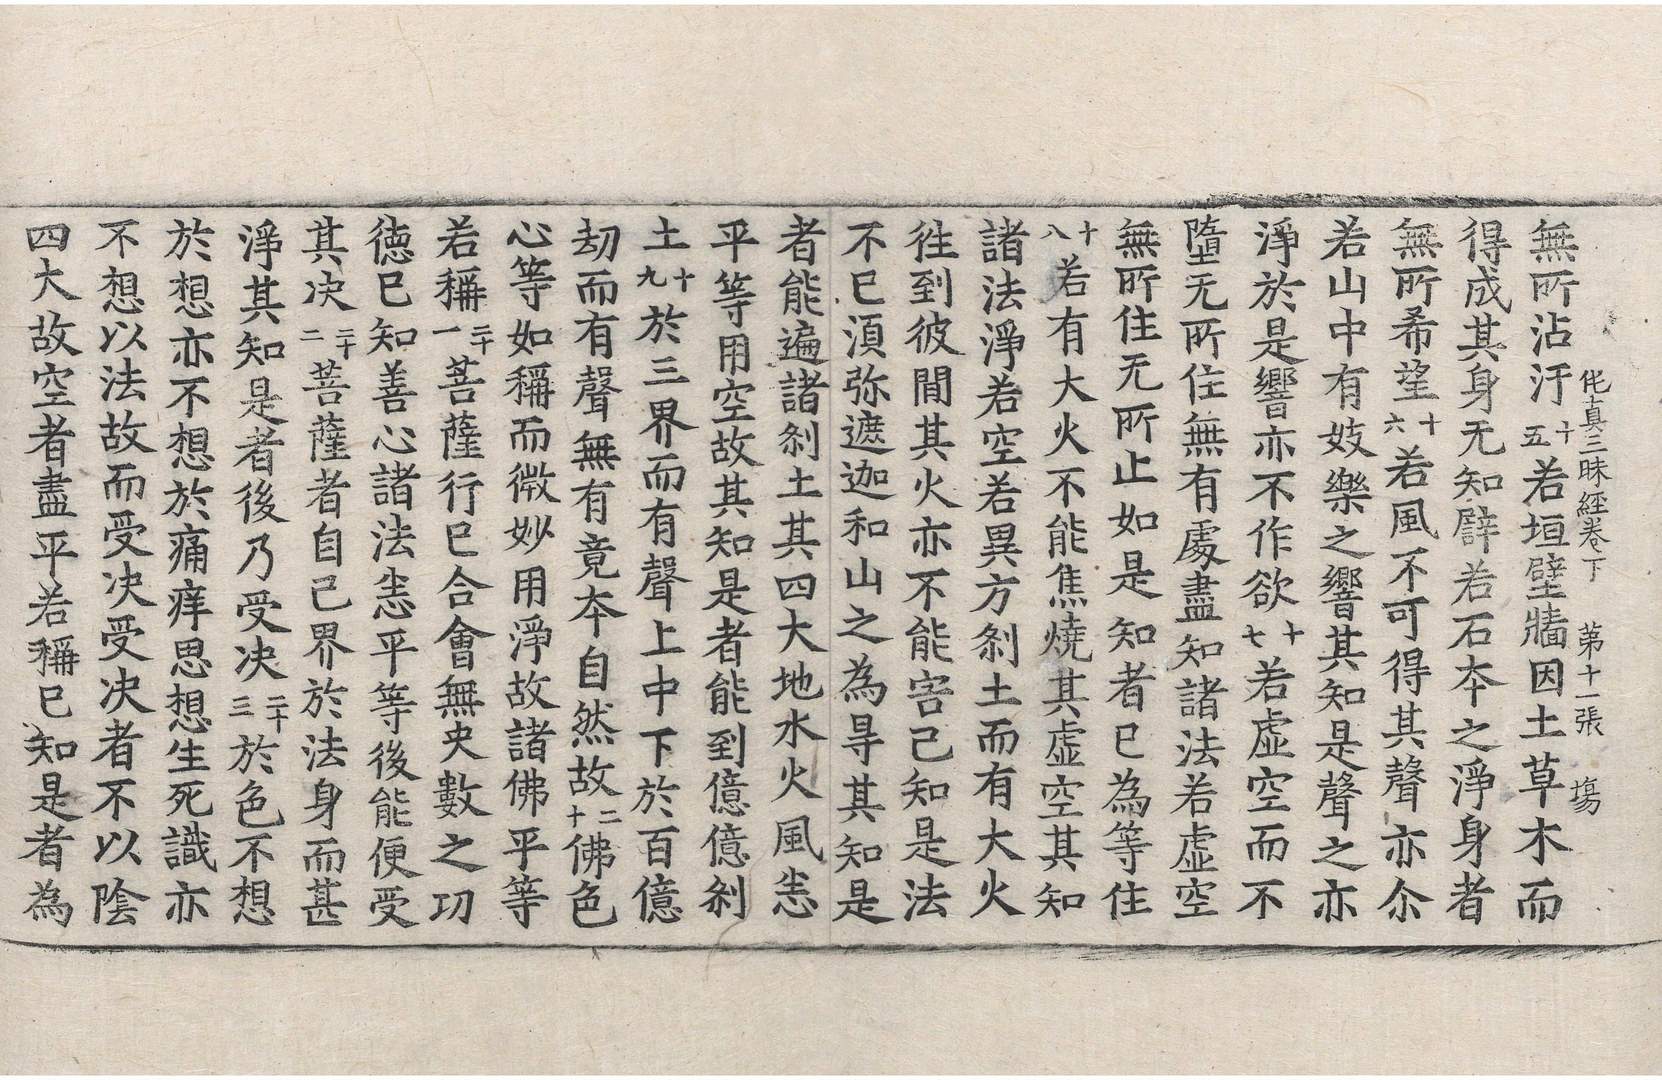 佗真三昧經卷下　第十一張　塲
無所沾汙十五若垣壁牆因土草木而
得成其身无知譬若石夲之淨身者
無所希望十六若風不可得其聲亦尒
若山中有妓樂之響其知是聲之亦
淨於是響亦不作欲十七若虛空而不
墮无所住無有處盡知諸法若虛空
無所住无所止如是知者已為等住
十八若有大火不能焦燒其虛空其知
諸法淨若空若異方刹土而有大火
徃到彼閒其火亦不能害己知是法
不已湏弥遮迦和山之為㝵其知是
者能遍諸刹土其四大地水火風恙
平等用空故其知是者能到億億刹
土十九於三界而有聲上中下於百億
劫而有聲無有竟夲自然故二十佛色
心等如稱而微妙用淨故諸佛乎等
若稱二十一菩薩行已合會無央數之功
徳已知善心諸法恙平等後能便受
其决二十二菩薩者自己界於法身而甚
淨其知是者後乃受决二十三於色不想
於想亦不想於痛痒思想生死識亦
不想以法故而受决受决者不以陰
四大故空者盡平若稱已知是者為